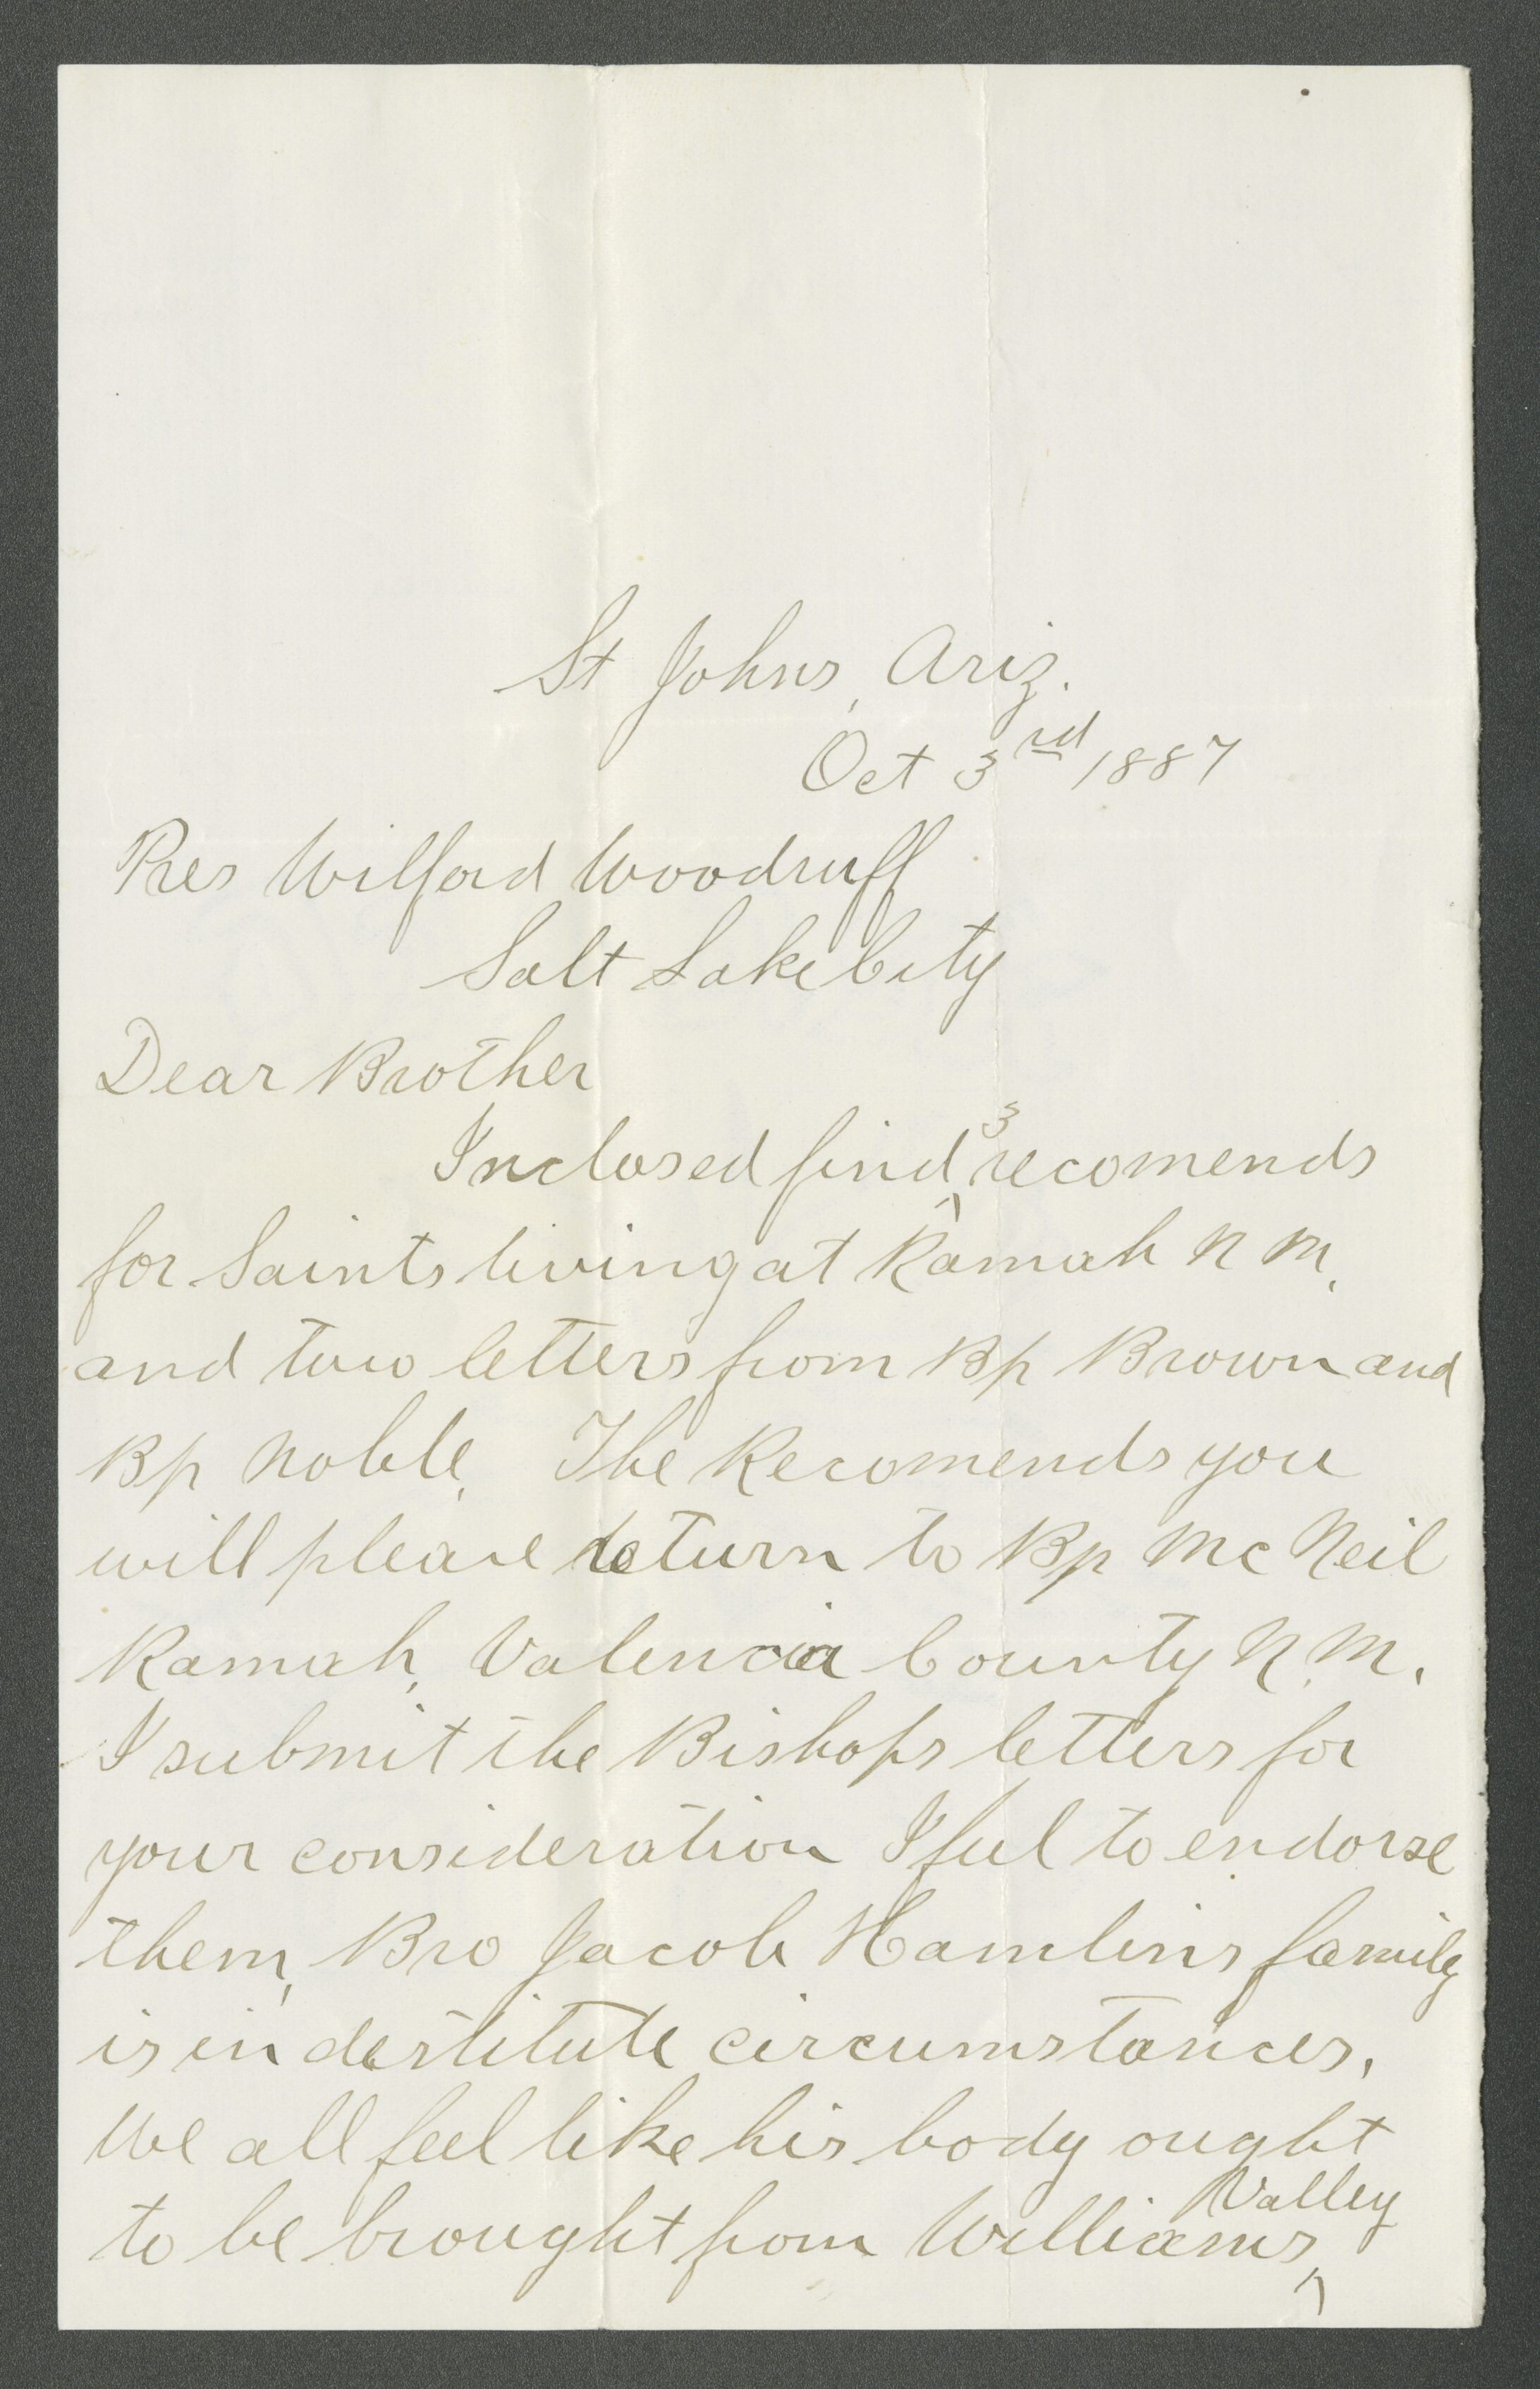 St Johns, Ariz.
Oct 3rd 1887
Pres Wilford Woodruff
Salt Lake City
Dear Brother
Inclosed find 3 recomends
for Saints living at Ramah N M,
and two letters from Bp Brown and
Bp Noble, The Recomends you
will please return to Bp McNeil
Ramah, Valencia County N. M.
I submit the Bishops letters for
your consideration I feel to endorse
them, Bro Jacob Hamlins family
is in destitute circumstances,
We all feel like his body ought
to be brought from Williams Valley